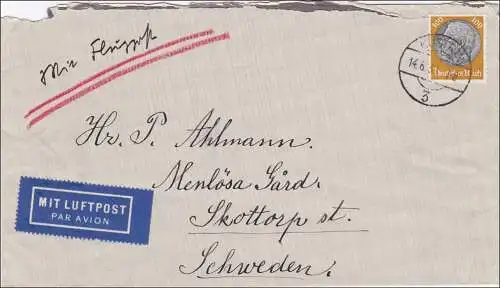 Mit Flugpost
100 100
Deutsches Reich
14.6.
3
Hr. P. Ahlmann.
Menlösa Gård.
Skottorp st.
Schweden.
MIT LUFTPOST
PAR AVION